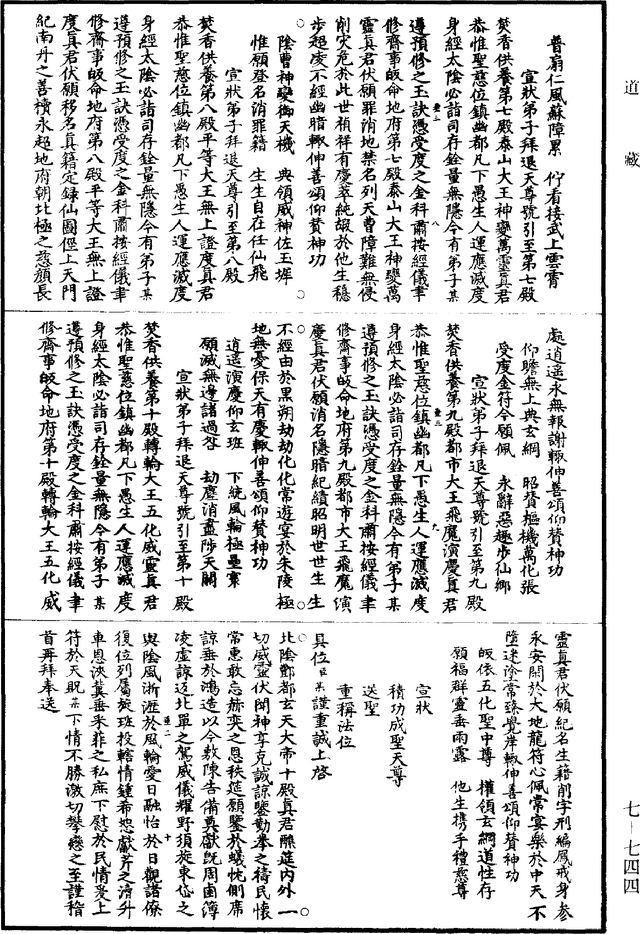 道藏
普扇仁風蘇障累　佇看接武上雲霄
宣狀弟子拜退天尊號引至第七殿
焚香供養第七殿泰山大王神變萬靈真君
恭惟聖慈位鎮幽都凡下愚生人運應滅度
身經太陰必詣司存銓量無隱今有弟子某
遵預修之玉訣憑受度之金科肅按經儀聿
修齋事皈命地府第七殿泰山大王神變萬
靈真君伏願罪消地禁名列天曹障難無侵
削災危於此世禎祥有慶萃純嘏於他生穩
步超凌不經幽暗輙伸善頌仰贊神功
陰曹神變御天機　典領威神佐玉墀
惟願登名消罪籍　生生自在任仙飛
宣狀弟子拜退天尊號引至第八殿
焚香供養第八殿平等大王無上證度真君
恭惟聖慈位鎮幽都凡下愚生人運應滅度
身經太陰必詣司存銓量無隱今有弟子某
遵預修之玉訣憑受度之金科肅按經儀聿
修齋事皈命地府第八殿平等大王無上證
度真君伏願移名真籍定錄仙圖徑上天門
紀南丹之善積永超地府朝北極之慈顏長
處逍遙永無報謝輙伸善頌仰贊神功
仰瞻無上典玄綱　昭贊樞機萬化張
受度金符今願佩　永辭惡趣步仙鄉
宣狀弟子拜退天尊號引至第九殿
焚香供養第九殿都市大王飛魔演慶真君
恭惟聖慈位鎮幽都凡下愚生人運應滅度
身經太陰必詣司存銓量無隱今有弟子某
遵預修之玉訣憑受度之金科肅按經儀聿
修齋事皈命地府第九殿都市大王飛魔演
慶真君伏願消名隱暗紀績昭明世世生生
不經由於黑朔劫劫化化常遊宴於朱陵極
地無憂保天有慶輙伸善頌仰贊神功
逍遙演慶仰玄班　下統風輪極壘寒
願滅無邊諸過咎　劫塵消盡陟天關
宣狀弟子拜退天尊號引至第十殿
焚香供養第十殿轉輪大王五化威靈真君
恭惟聖慈位鎮幽都凡下愚生人運應滅度
身經太陰必詣司存銓量無隱今有弟子某
遵預修之玉訣憑受度之金科肅按經儀聿
修齋事皈命地府第十殿轉輪大王五化威
靈真君伏願紀名生籍削字刑編鳳戒身參
永安閑於大地龍符心佩常宴樂於中天不
墮迷陰常臻覺岸輙伸善頌仰贊神功
皈依五化聖中尊　權領玄綱道性存
願福群靈垂雨露　他生攜手禮慈尊
宣狀
積功成聖天尊
送聖
重稱法位
具位臣某謹重誠上啓
北陰酆都玄天大帝十殿真君醮筵內外一
切威靈伏聞神享克誠諒鑒勤拳之禱民懷
常惠敢忘赫奕之恩秩筵願鑒於蟻忱側席
諒垂於鴻造以今敷陳告備奠獻既周鹵簿
凌虛諒返北單之駕威儀耀野須旋東岱之
輿陰風淅瀝於風輪愛日融怡於日觀諸僚
復位列屬旋班投轄情鍾希恕獻芹之瀆升
車恩浹冀垂采菲之私庶下慰於民情爰上
符於天貺某下情不勝激切攀戀之至謹稽
首再拜奉送
七－七四四